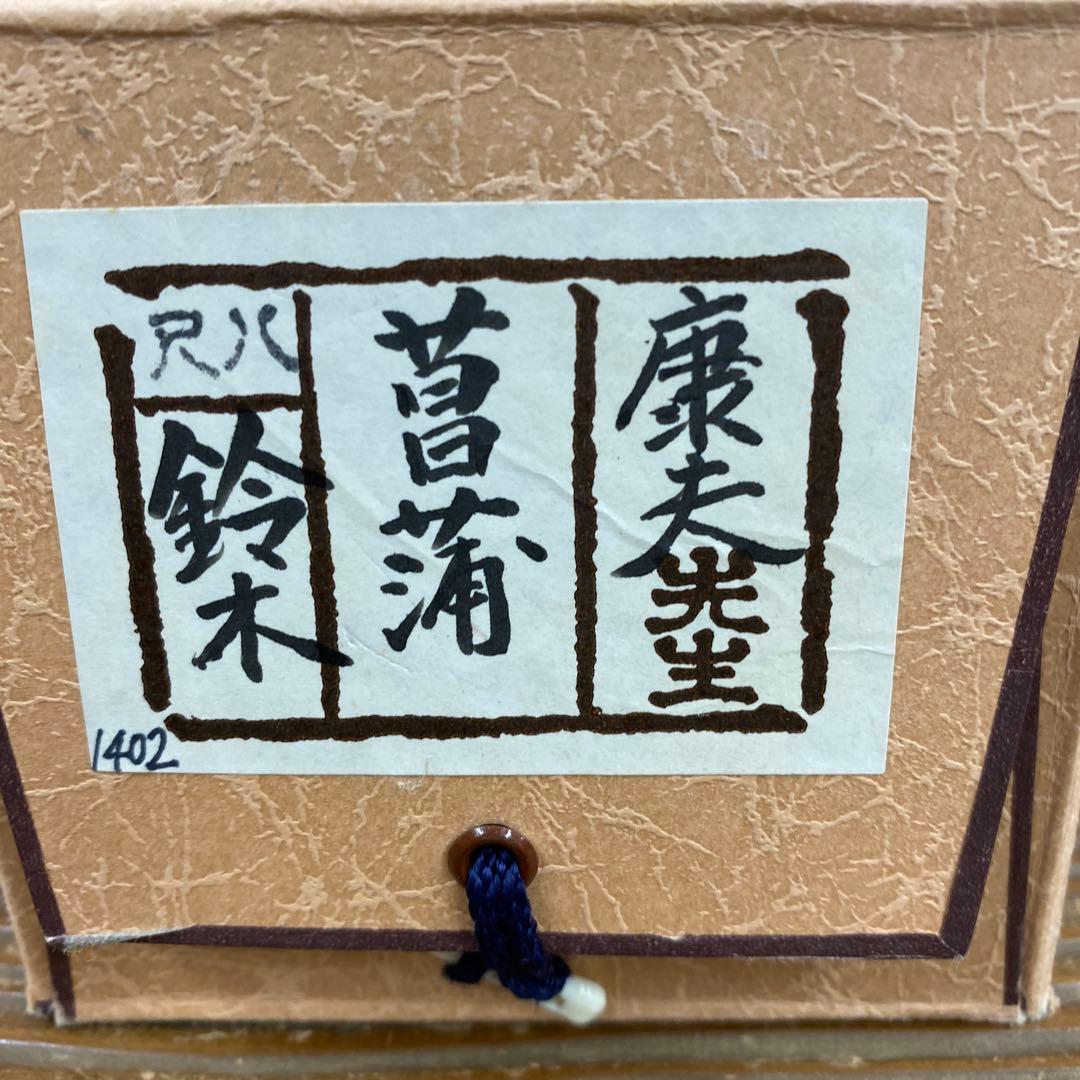 康夫先生
菖蒲
尺八
鈴木
1402